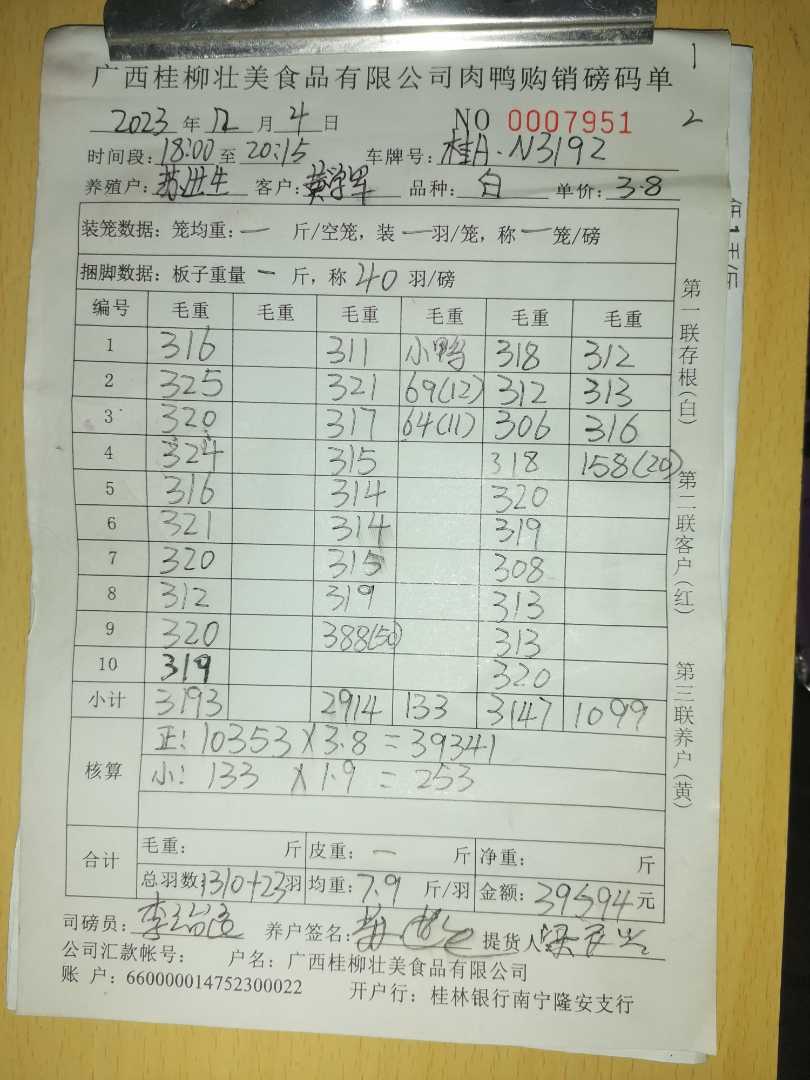 1
广西桂柳壮美食品有限公司肉鸭购销磅码单
2023年12月4日 NO 0007951 2
时间段:18:00至20:15 车牌号:桂A·N3192
养殖户: 客户:黄学军 品种:白 单价:3.8
装笼数据:笼均重:一 斤/空笼,装一羽/笼,称一笼/磅
捆脚数据:板子重量 一 斤,称 40 羽/磅
编号 毛重 毛重 毛重 毛重 毛重 毛重
1 316 311 小鸭 318 312
2 325 321 69(12) 312 313
3 320 317 64(11) 306 316
4 324 315 318 158(20)
5 316 314 320
6 321 314 319
7 320 315 308
8 312 319 313
9 320 388(50) 313
10 319 320
小计 3193 2914 133 3147 1099
核算
正:10353×3.8=39341
小:133 ×1.9=253
合计
毛重: 斤 皮重:一 斤 净重: 斤
总羽数:1310+23羽 均重:7.9 斤/羽 金额:39594元
司磅员: 养户签名: 提货人
公司汇款帐号: 户名:广西桂柳壮美食品有限公司
账 户:660000014752300022 开户行:桂林银行南宁隆安支行
第一联存根(白)
第二联客户(红)
第三联养户(黄)